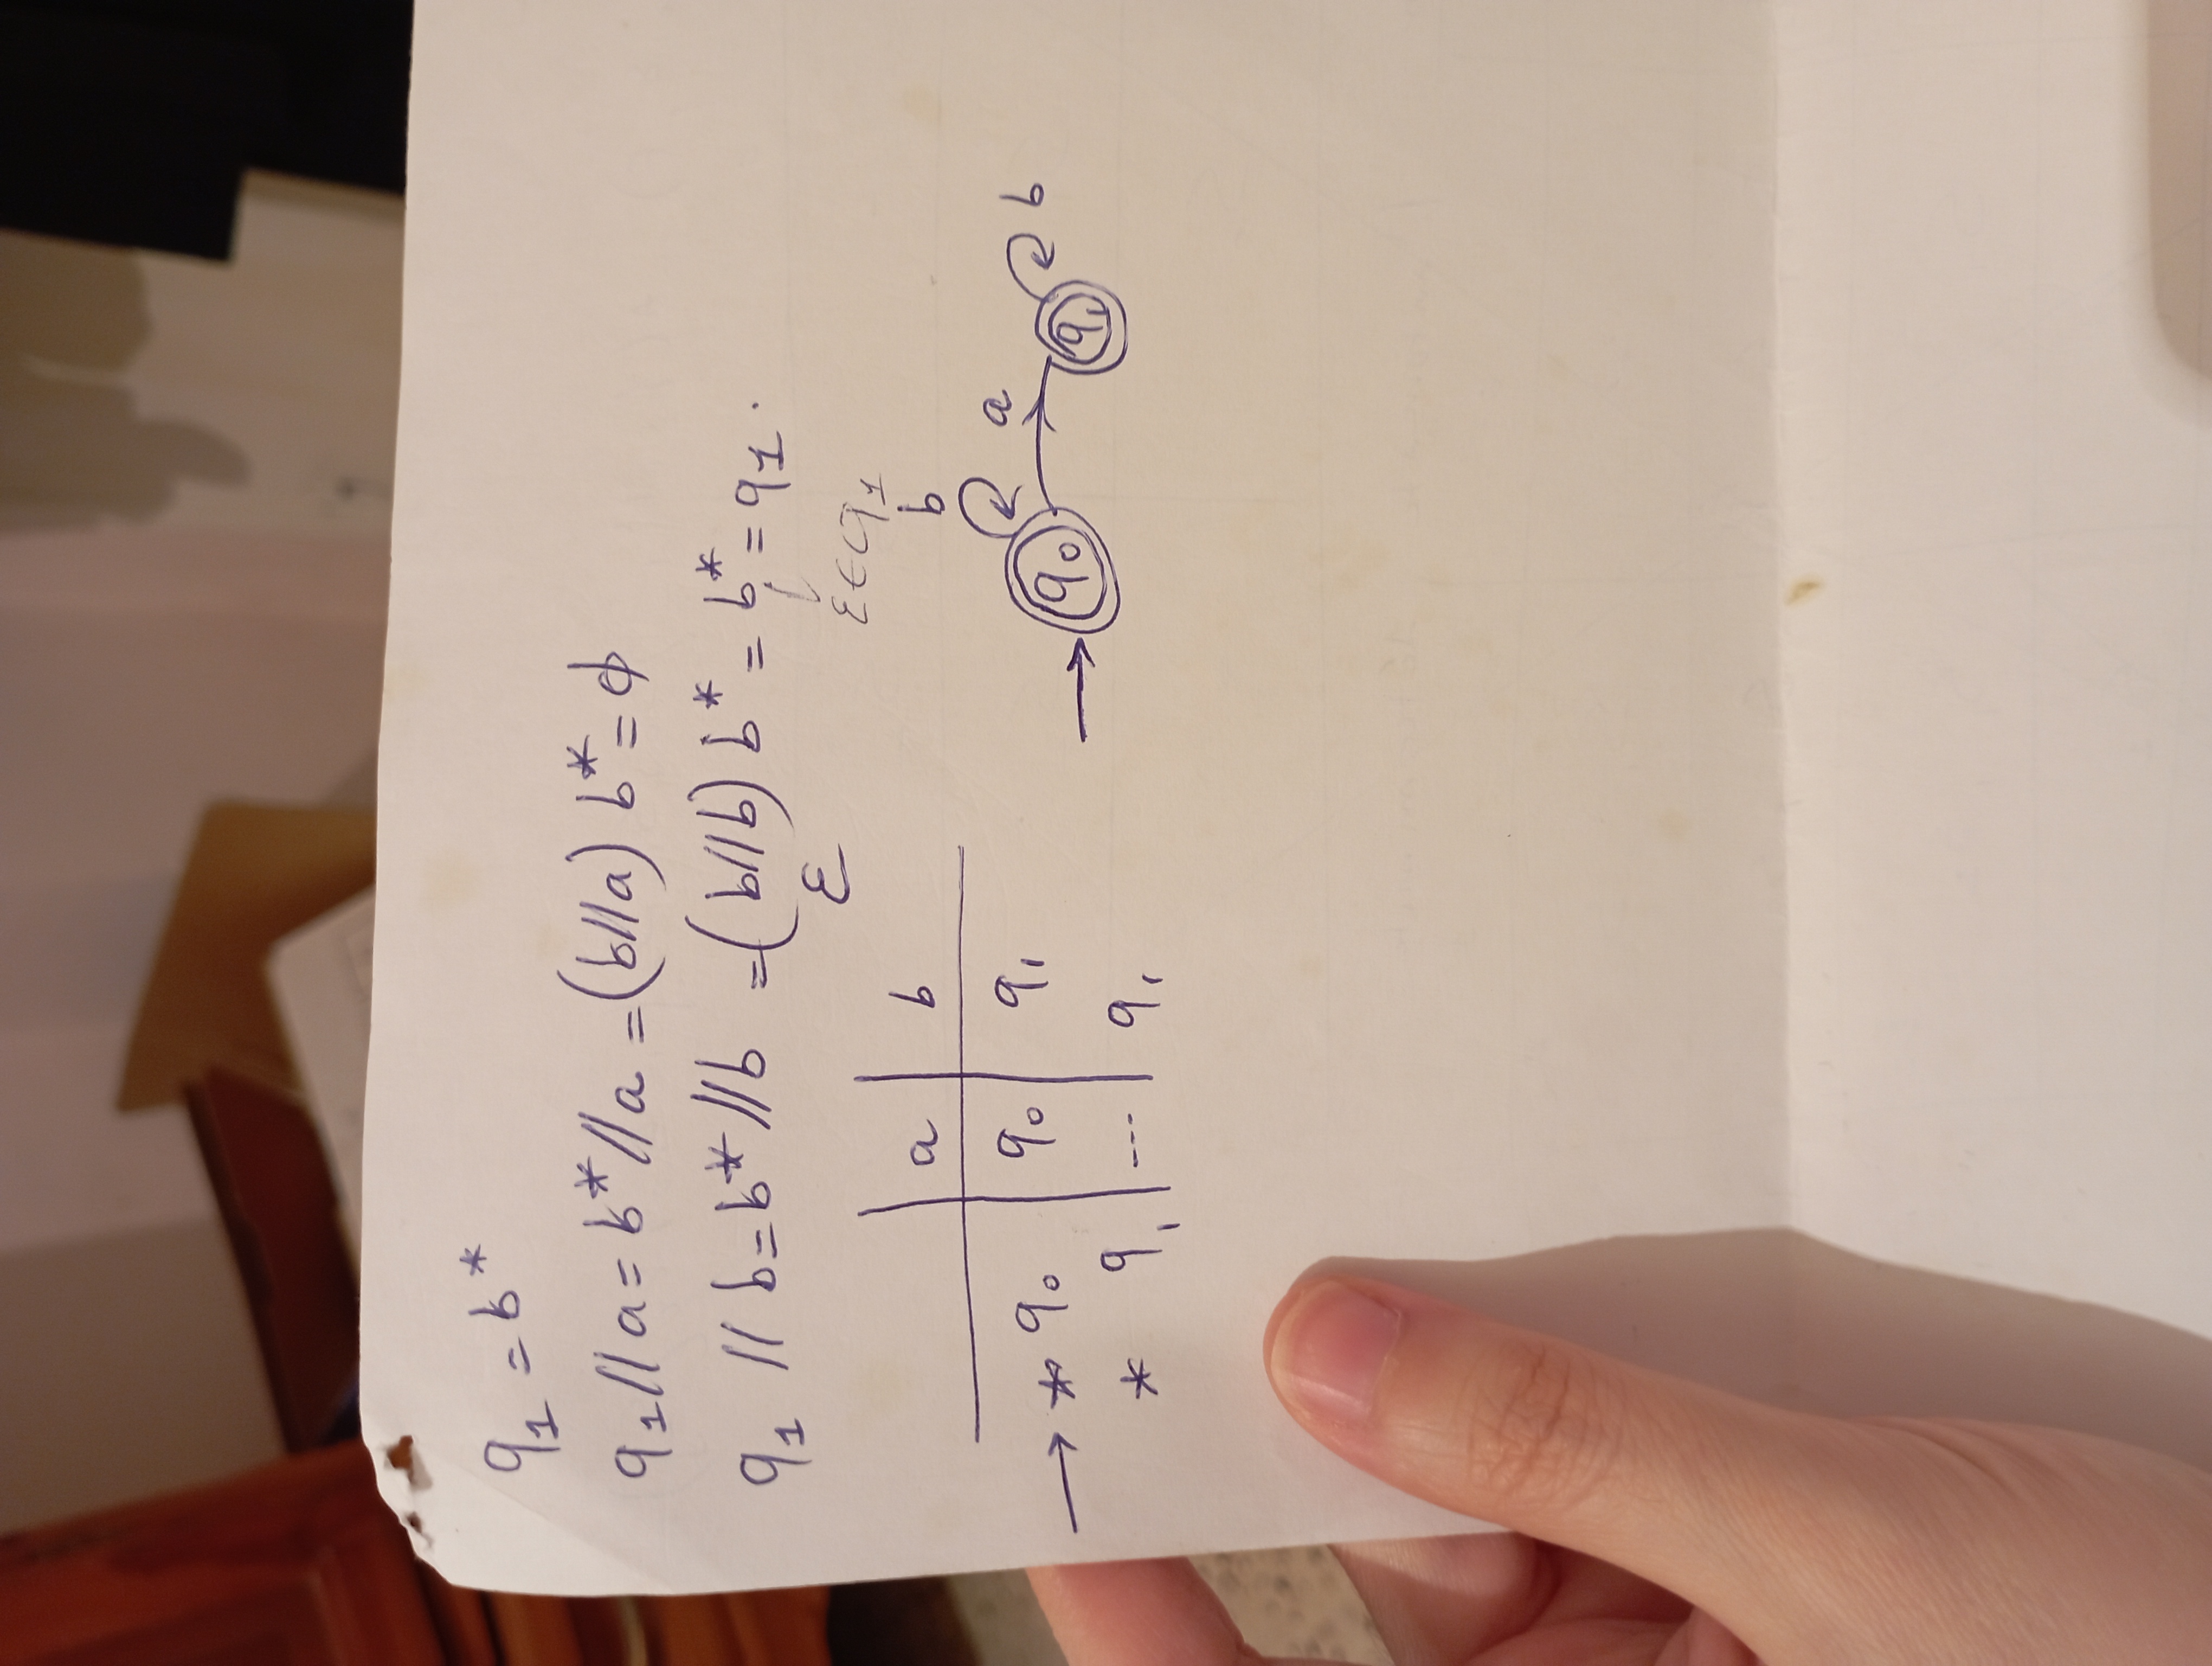 q₁ = b*
q₁//a = b*//a = (b//a) b* = ϕ
q₁ // b = b*//b = (b//b) b* = b* = q₁.
ε
ε∈q₁
a b
→ * q₀ q₀ q₁
* q₁ --- q₁
b
a
b
→ q₀ q₁